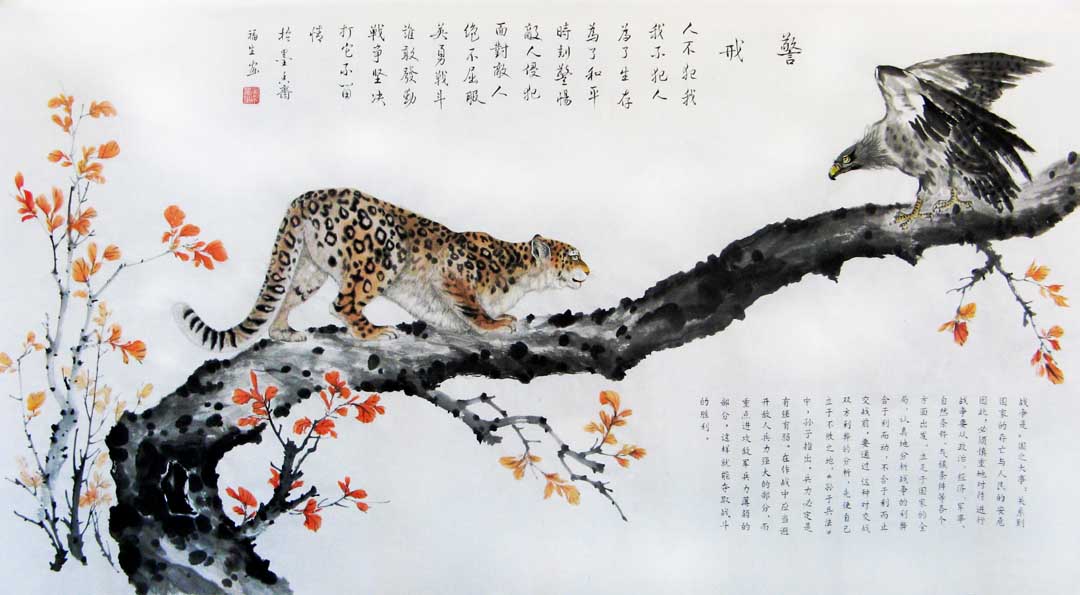 警戒
人不犯我
我不犯人
為了生存
為了和平
時刻警惕
敵人侵犯
面對敵人
绝不屈服
英勇戰斗
誰敢發動
戰爭坚决
打它不留
情
於墨香齋
福生画
战争是,国之大事,关系到
国家的存亡与人民的安危
因此,必须慎重地对待进行
战争要从政治、经济、军事、
自然条件、气候条件等各个
方面出发。立足于国家的全
局,认真地分析战争的利弊
合于利而动,不合于利而止
交战前,要通过这种对交战
双方利弊的分析,先使自己
立于不败之地。《孙子兵法》
中,孙子指出,兵力必定是
有强有弱。在作战中应当避
开敌人兵力强大的部分,而
重点进攻敌军兵力薄弱的
部分,这样就能夺取战斗
的胜利。